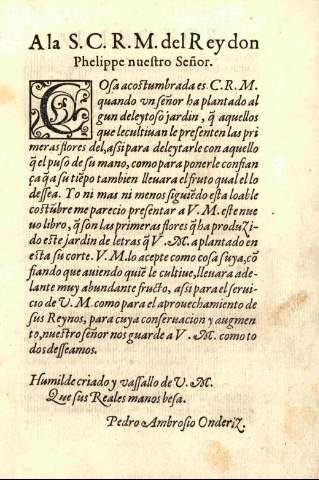 A la S. C. R. M. del Rey don
Phelippe nuestro Señor.
COsa acostumbrada es. C. R. M.
quando vn señor ha plantado al
gun deleytoso jardin, q̃ aquellos
que le cultiuan le presenten las pri
meras flores del, assi para deleytarle con aquello
q̃ el puso de su mano, como para ponerle confian
ça q̃ a su tiẽpo tambien lleuara el fruto qual el lo
dessea. Yo ni mas ni menos siguiẽdo esta loable
costũbre me parecio presentar a V. M. este nue
uo libro, q̃ son las primeras flores q̃ ha produzi-
do este jardin de letras q̃ V. M. a plantado en
esta su corte. V. M. lo acepte como cosa suya, cõ
fiando que auiendo quiẽ le cultiue, lleuara ade-
lante muy abundante fructo, assi para el serui-
cio de V. M. como para el aprouechamiento de
sus Reynos, para cuya conseruacion y augmen
to, nuestro señor nos guarde a V. M. como to
dos desseamos.
Humilde criado y vassallo de V. M.
Que sus Reales manos besa.
Pedro Ambrosio Onderiz.